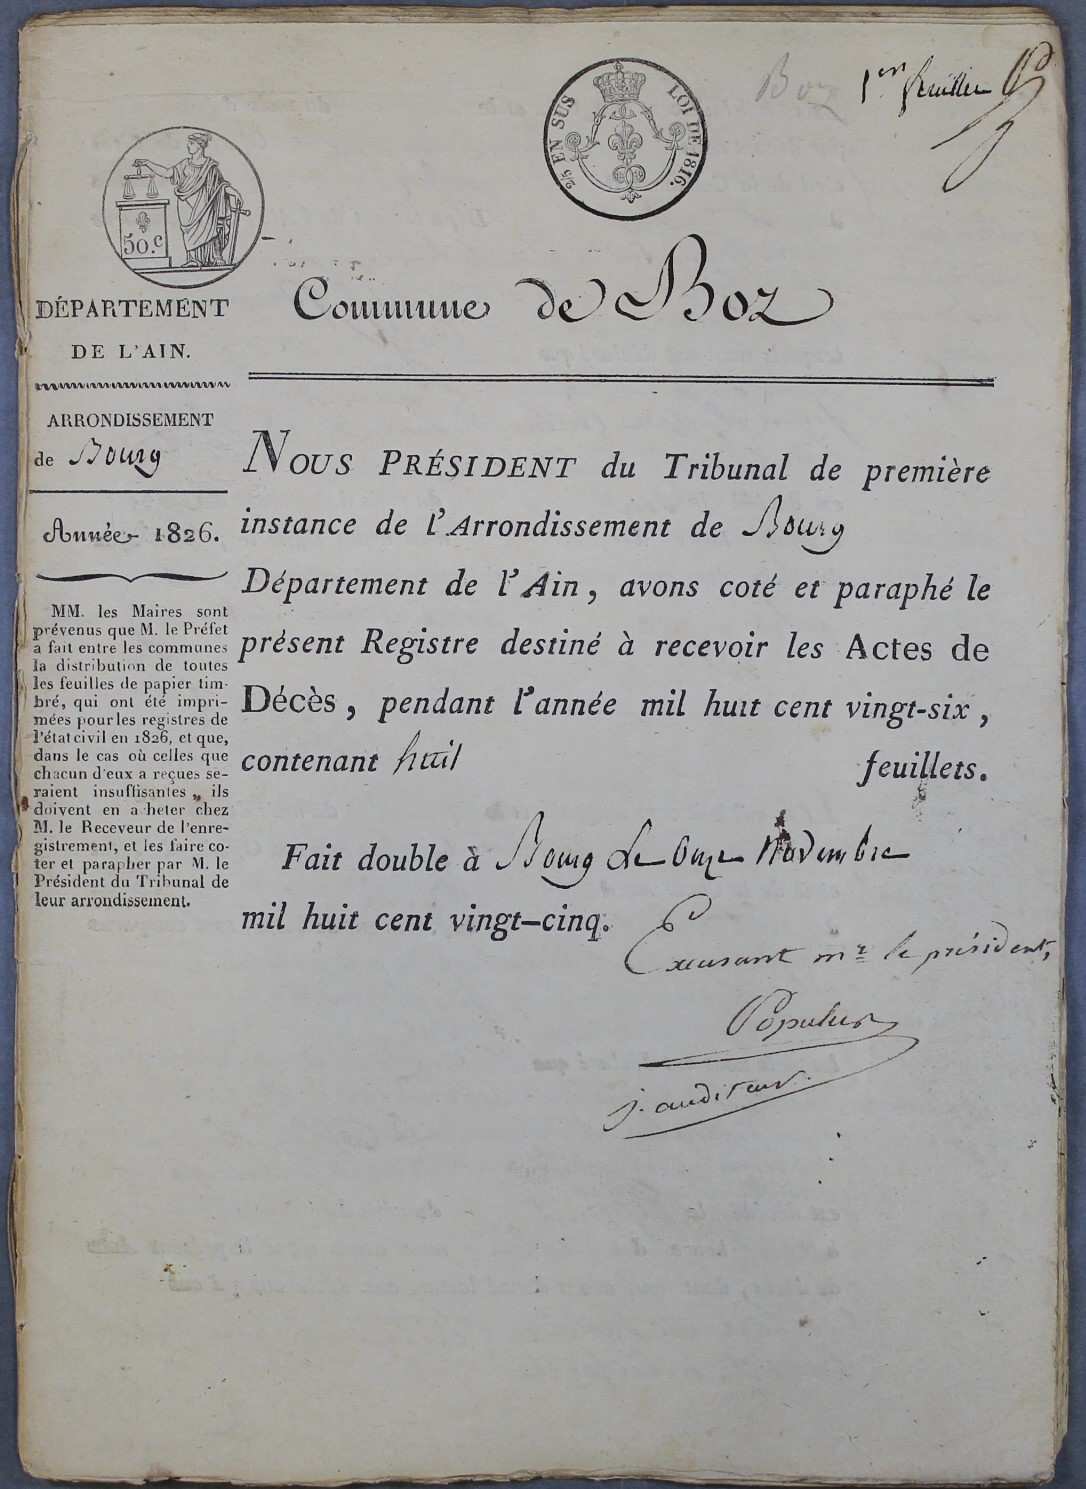 Boz
1er feuillet
2/5 EN SUS LOI DE 1816.
50.c
DÉPARTEMENT
DE L'AIN.
Commune de Boz
ARRONDISSEMENT
de Bourg
Année 1826.
MM. les Maires sont
prévenus que M. le Préfet
a fait entre les communes
la distribution de toutes
les feuilles de papier tim-
bré, qui ont été impri-
mées pour les registres de
l'état civil en 1826, et que,
dans le cas où celles que
chacun d'eux a reçues se-
raient insuffisantes, ils
doivent en acheter chez
M. le Receveur de l'enre-
gistrement, et les faire co-
ter et parapher par M. le
Président du Tribunal de
leur arrondissement.
NOUS PRÉSIDENT du Tribunal de première
instance de l'Arrondissement de Bourg
Département de l'Ain, avons coté et paraphé le
présent Registre destiné à recevoir les Actes de
Décès, pendant l'année mil huit cent vingt-six,
contenant huit feuillets.
Fait double à Bourg le onze novembre
mil huit cent vingt-cinq.
Excusant mr le président,
Populus
j. auditeur.